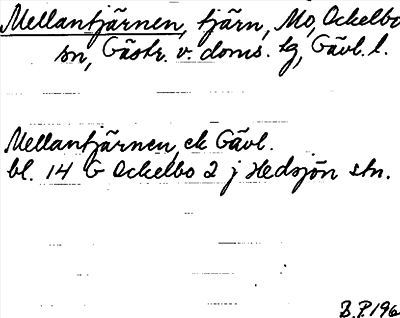 Mellantjärnen, tjärn, Mo, Ockelbo
sn, Gästr. v. doms. tg, Gävl. l.
Mellantjärnen, ek Gävl.
bl. 14 G Ockelbo 2 j Hedsjön stn.
B.P.196